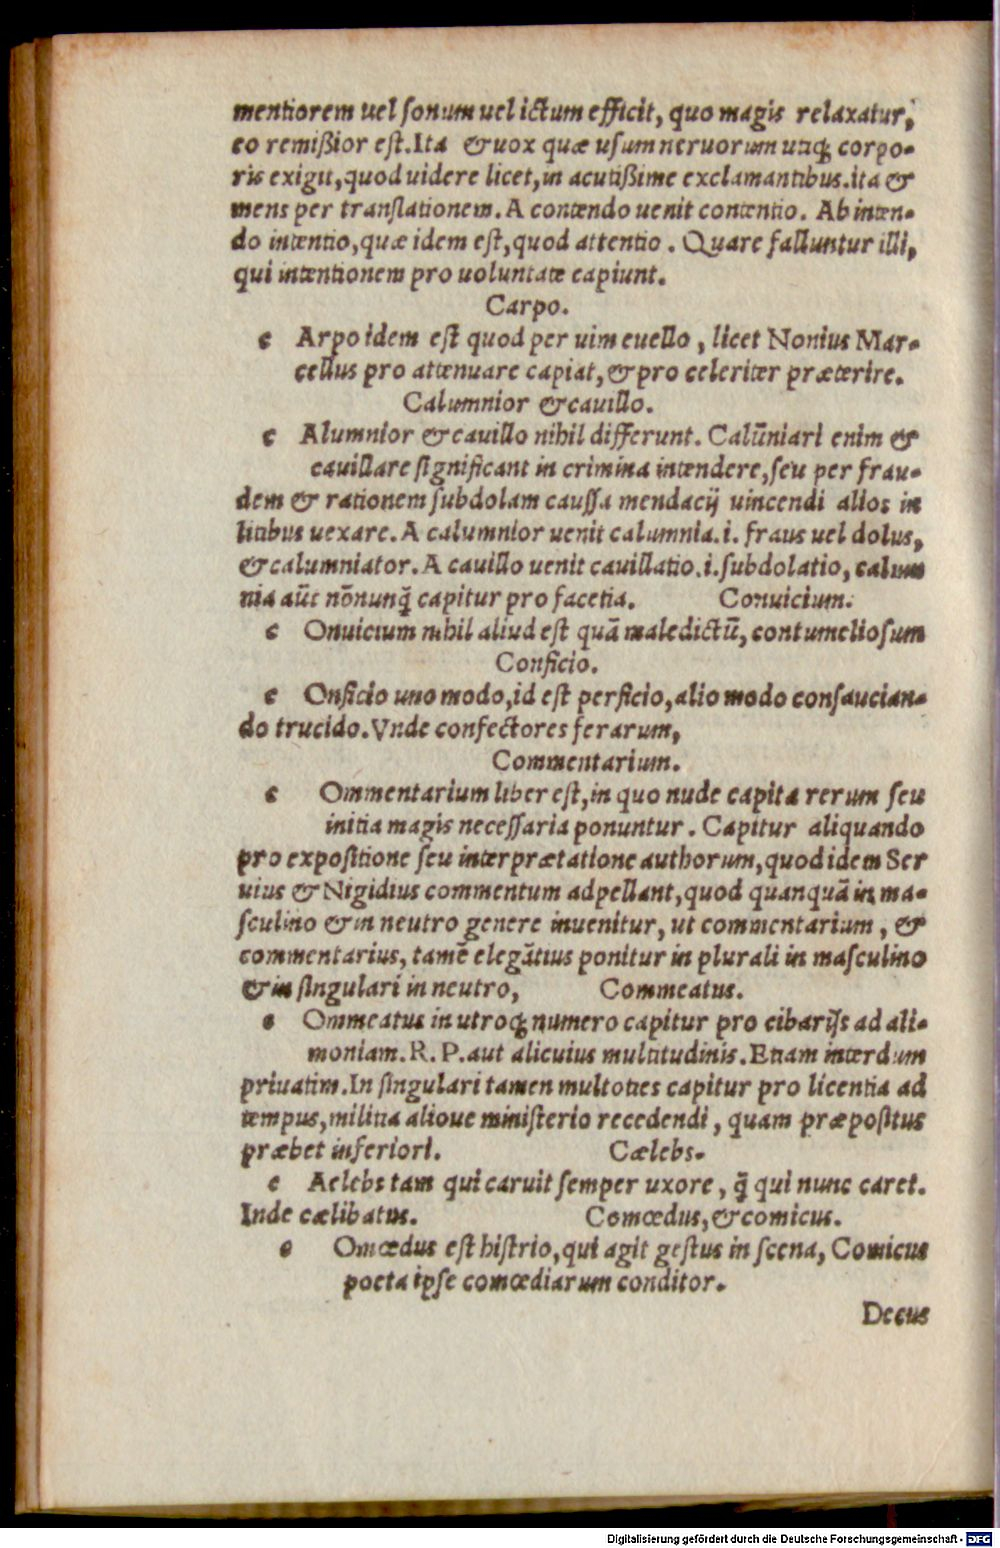 mentiorem uel ſonum uel ictum efficit, quo magis relaxatur,
eo remißior eſt. Ita & uox quæ uſum neruorum utiq; corpo-
ris exigit, quod uidere licet, in acutißime exclamantibus. ita &
mens per tranſlationem. A contendo uenit contentio. Ab inten-
do intentio, quæ idem eſt, quod attentio. Quare falluntur illi,
qui intentionem pro uoluntate capiunt.
Carpo.
c Arpo idem eſt quod per uim euello, licet Nonius Mar-
cellus pro attenuare capiat, & pro celeriter præterire.
Calumnior & cauillo.
c Alumnior & cauillo nihil differunt. Calūniari enim &
cauillare ſignificant in crimina intendere, ſeu per frau-
dem & rationem ſubdolam cauſſa mendacij uincendi alios in
litibus uexare. A calumnior uenit calumnia. i. fraus uel dolus,
& calumniator. A cauillo uenit cauillatio. i. ſubdolatio, calum
nia aūt nōnunq̃ capitur pro facetia. Conuicium.
c Onuicium nihil aliud eſt quã maledictū, contumelioſum
Conficio.
c Onficio uno modo, id eſt perficio, alio modo conſaucian-
do trucido. Vnde confectores ferarum,
Commentarium.
c Ommentarium liber eſt, in quo nude capita rerum ſeu
initia magis neceſſaria ponuntur. Capitur aliquando
pro expoſitione ſeu interprætatione authorum, quod idem Ser
uius & Nigidius commentum adpellant, quod quanquã in ma-
ſculino & in neutro genere inuenitur, ut commentarium, &
commentarius, tamē elegãtius ponitur in plurali in maſculino
& in ſingulari in neutro, Commeatus.
c Ommeatus in utroq; numero capitur pro cibarijs ad ali-
moniam. R. P. aut alicuius multitudinis. Etiam interdum
priuatim. In ſingulari tamen multoties capitur pro licentia ad
tempus, militia alioue miniſterio recedendi, quam præpoſitus
præbet inferiori. Cælebs.
c Aelebs tam qui caruit ſemper uxore, q̃ qui nunc caret.
Inde cælibatus. Comœdus, & comicus.
c Omœdus eſt hiſtrio, qui agit geſtus in ſcena, Comicus
poeta ipſe comœdiarum conditor.
Decus
Digitalisierung gefördert durch die Deutsche Forschungsgemeinschaft - DFG